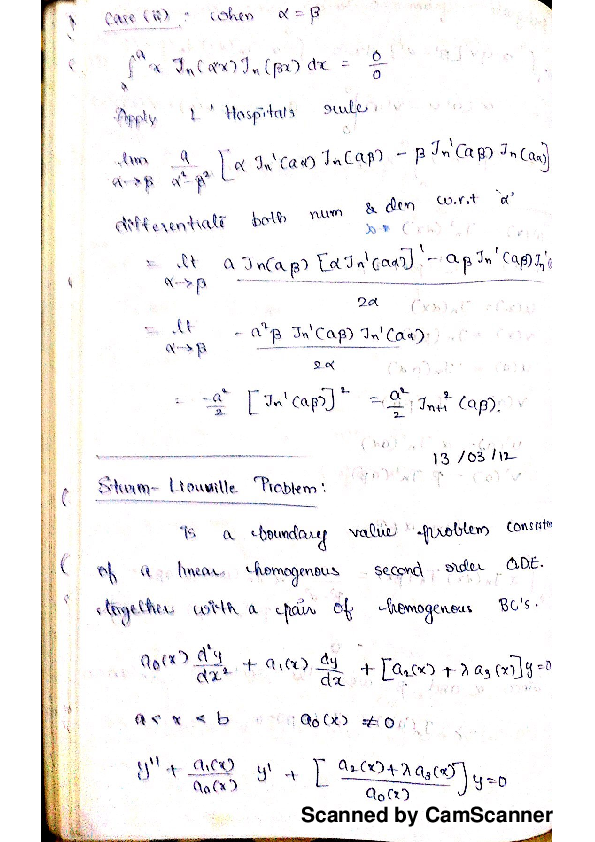 Case (ii) : when α = β
∫ₐᵃ x Jn(αx) Jn(βx) dx = 0/0
Apply L' Hospitals rule
lim α→β a/(α²-β²) [α Jn'(aα) Jn(aβ) - β Jn'(aβ) Jn(aα)]
differentiate both num & den w.r.t 'α'
= lt α→β (a Jn(aβ) [α Jn'(aα)]' - aβ Jn'(aβ) Jn'
2α
= lt α→β -a²β Jn'(aβ) Jn'(aα) / 2α
= -a²/2 [Jn'(aβ)]² = a²/2 J²n+1 (aβ).
13/03/12
Sturm-Liouville Problem:
Is a boundary value problem consists
of a linear homogenous second order ODE.
together with a pair of homogenous BC's.
a₀(x) d²y/dx² + a₁(x) dy/dx + [a₂(x) + λ a₃(x)]y=0
a < x < b a₀(x) ≠ 0
y'' + a₁(x)/a₀(x) y' + [(a₂(x)+λ a₃(x))/a₀(x)] y=0
Scanned by CamScanner